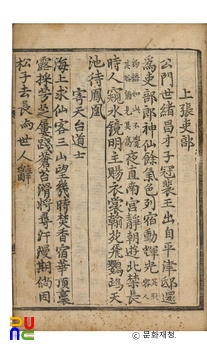 上張吏部
公門世緒昌才子冠裴王出自平津邸還
為吏部郎神仙餘氣色列宿動輝光
夜直南宮靜朝遊北禁長
時人窺水鏡明主賜衣裳翰苑飛鸚鵡天
池待鳳凰
寄天台道士
海上求仙客三山望幾時焚香宿華頂裛
露採芳芝屢踐莓苔滑將尋汗漫期倘因
松子去長與世人辭
ⓒ 문화재청.